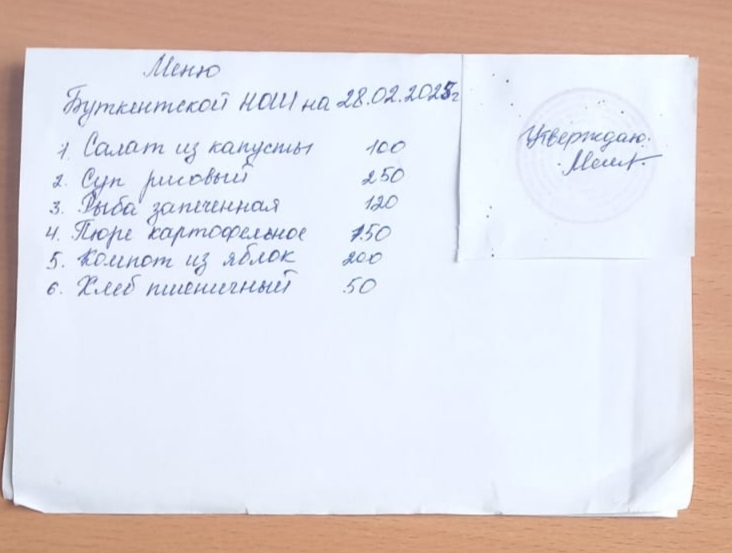 Меню
Буткентской НОШ на 28.02.2025г
1. Салат из капусты 100
2. Суп рисовый 250
3. Рыба запеченная 120
4. Пюре картофельное 150
5. Компот из яблок 200
6. Хлеб пшеничный 50
Утверждаю.